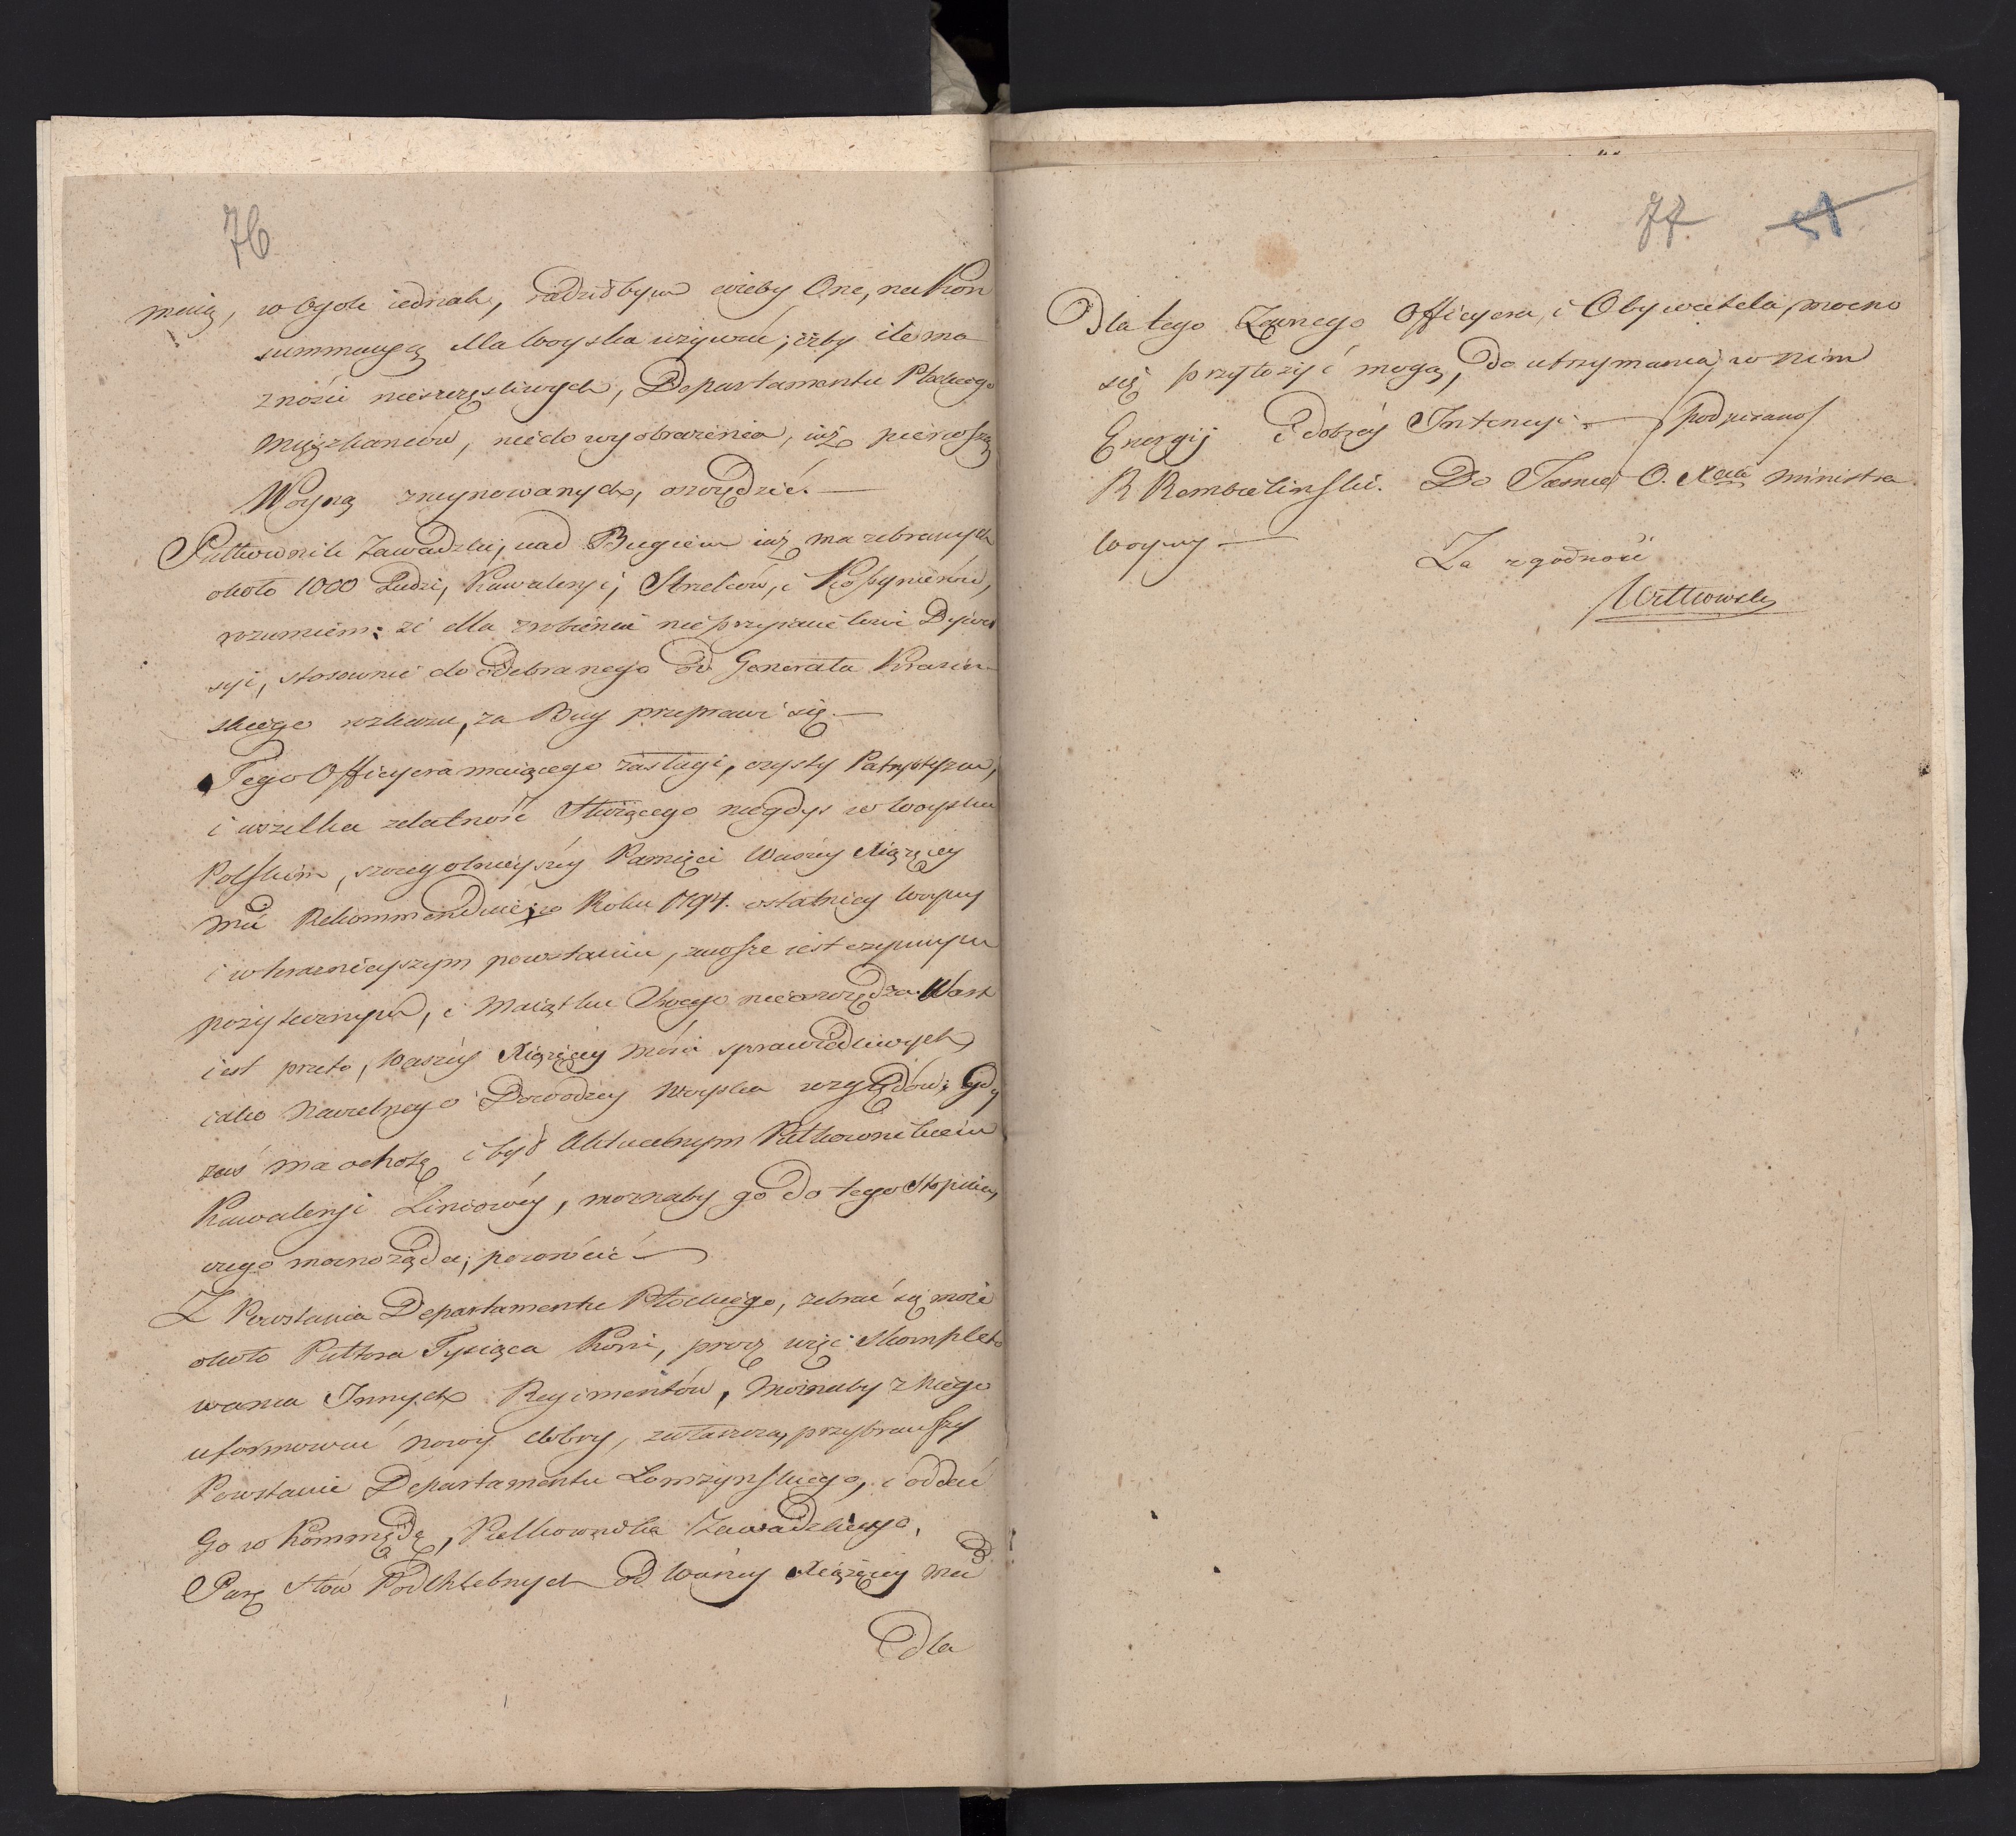 76
maią, w Ogole iednak, radziłbym iżeby One, na Kon
summacyą dla Woyska używać; iżby ile mo
żności nieszczęśliwych, Departamentu Płockiego
Mięszkańców, niedowyobrażenia, iuż pierwszą
Woyną zruynowanych, oszczędzić. —
Pułkownik Zawadzki, nad Bugiem iuż ma zebranych
około 1000 Ludzi, Kawaleryi, Strzelców, i Kossynierów,
rozumiem: że dla zrobienia nieprzyiacielowi Dywer
syi, stosownie do odebranego od Generała Krasiń
skiego rozkazu, za Bug przeprawi się. —
Tego Officyera maiącego zasługi, czysty Patryotyzm,
i wszelka zdatność Służącego niegdyś w Woysku
Polskim, szczegolnieyszey Pamięci Waszey Xiążęcey
Mci Rekommenduię; w Roku 1794. ostatniey Woyny
i w teraznieyszym powstaniu, zawsze iest czynnym
pożytecznym, i Maiątku Swego nieoszczędza. Wart
iest przeto, Waszey Xiążęcey Mości sprawiedliwych,
iako Naczelnego Dowodzcy Woyska względów; Gdy
zaś ma ochotę i być Aktualnym Pułkownikiem
Kawaleryi Liniowey, możnaby go do tego Stopnia,
czego mocno żąda, powrócić —
Z Powstania Departamentu Płockiego, zebrać się może
około Pułtora Tysiąca Koni, procz więc Skompleto
wania Innych Regimentów, możnaby z Niego
uformować nowy dobry, zwłaszcza, przybrawszy
Powstanie Departamentu Łomżynskiego, i oddać
Go w Kommędę, Pułkownika Zawadzkiego.
Parę słów Podchlebnych od Waszey Xiążęcey Mci
dla
77. 51
Dla tego Zacnego Officyera, i Obywatela, mocno
się przyłożyć mogą, do utrzymania w nim
Energij i dobrey Intencyi — /podpisano/
R Rembieliński. Do Jasnie O. Xcia Ministra
Woyny —
Za zgodność
Witkowski